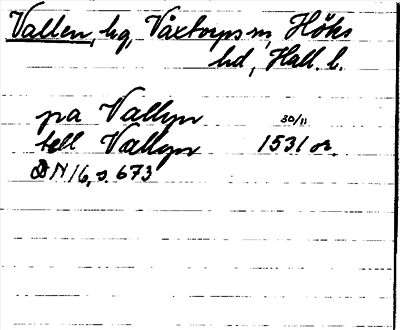 Vallen, hg, Våxtorps sn, Höks
hd, Hall. l.
pa Vallyn 30/11
tell Vallyn 1531 or.
DN 16, s. 673